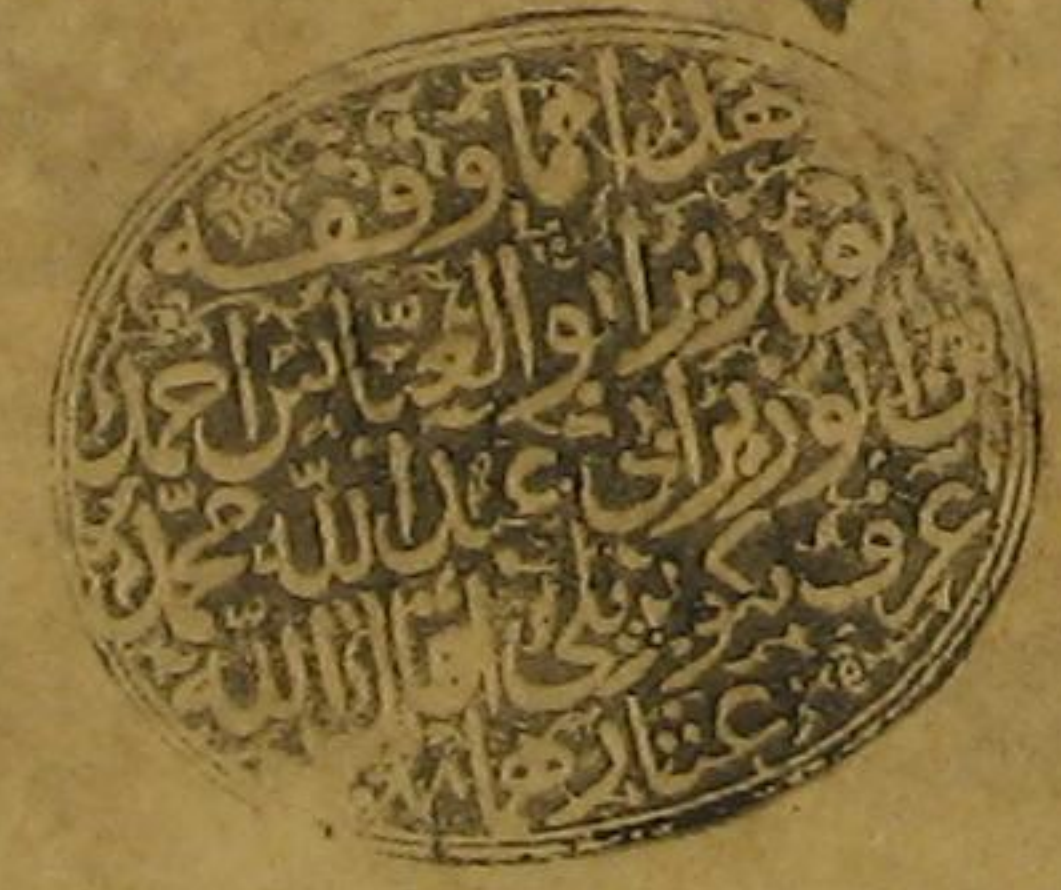 هذا ما وقفه
الوزير ابو العباس احمد
بن الوزير ابي عبد الله محمد
عرف بكوبريلي اقال الله
عثارهما ٨٨